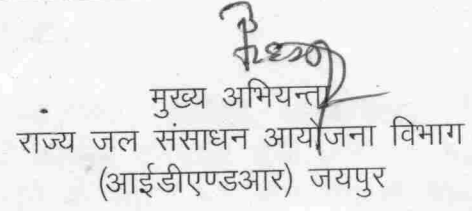 मुख्य अभियन्ता
राज्य जल संसाधन आयोजना विभाग
(आईडीएण्डआर) जयपुर